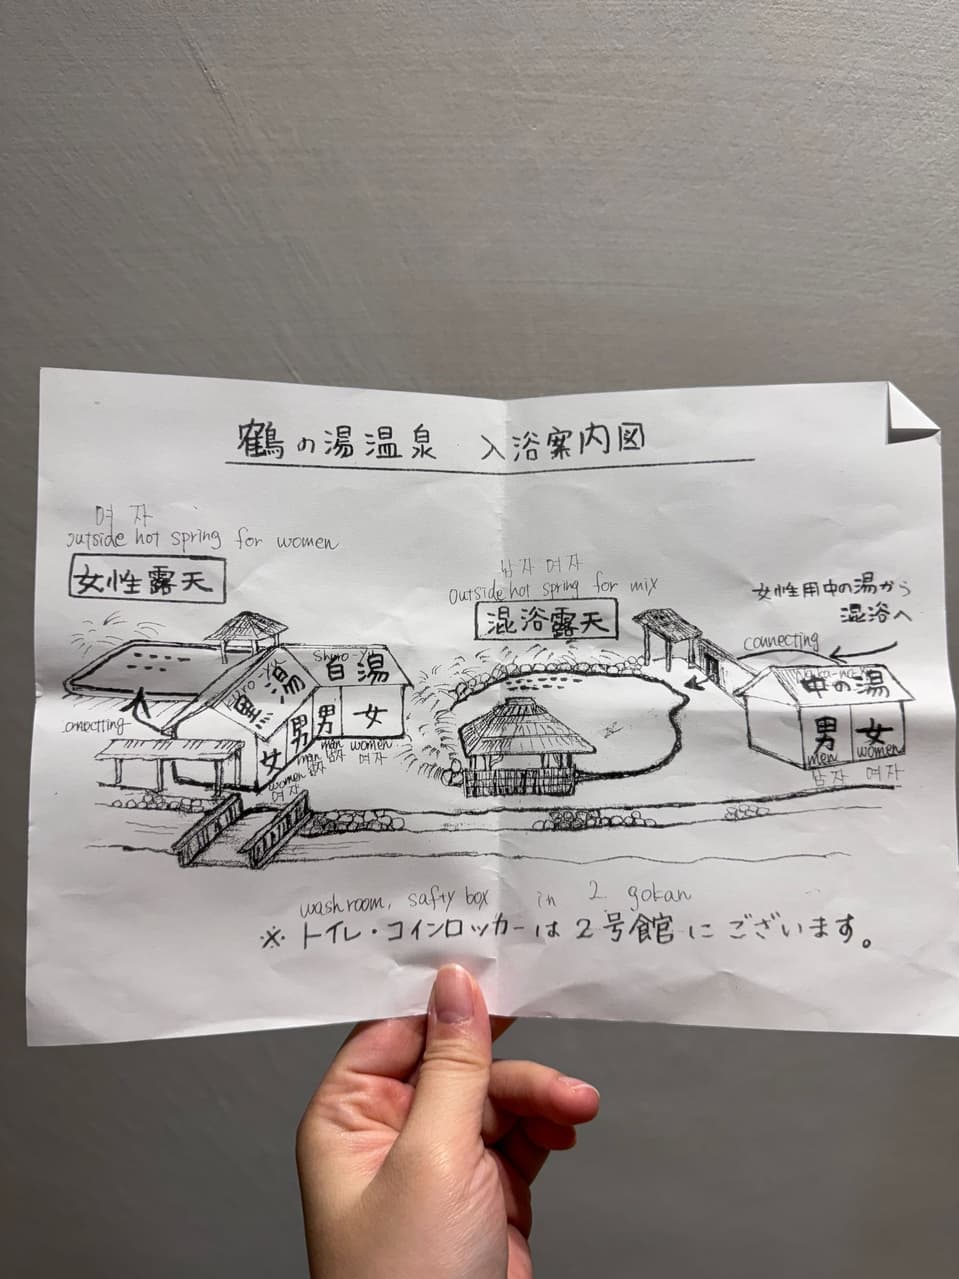 鶴の湯温泉 入浴案内図
여자
outside hot spring for women
女性露天
남자 여자
outside hot spring for mix
混浴露天
女性用中の湯から
混浴へ
connecting
黒湯
Shiro-Yu
白湯
Naka-no
中の湯
connectting
女
男
男
女
women
여자
men
남자
men
남자
women
여자
男
女
men
women
남자
여자
washroom, safty box in 2 gokan
※トイレ・コインロッカーは2号館にございます。